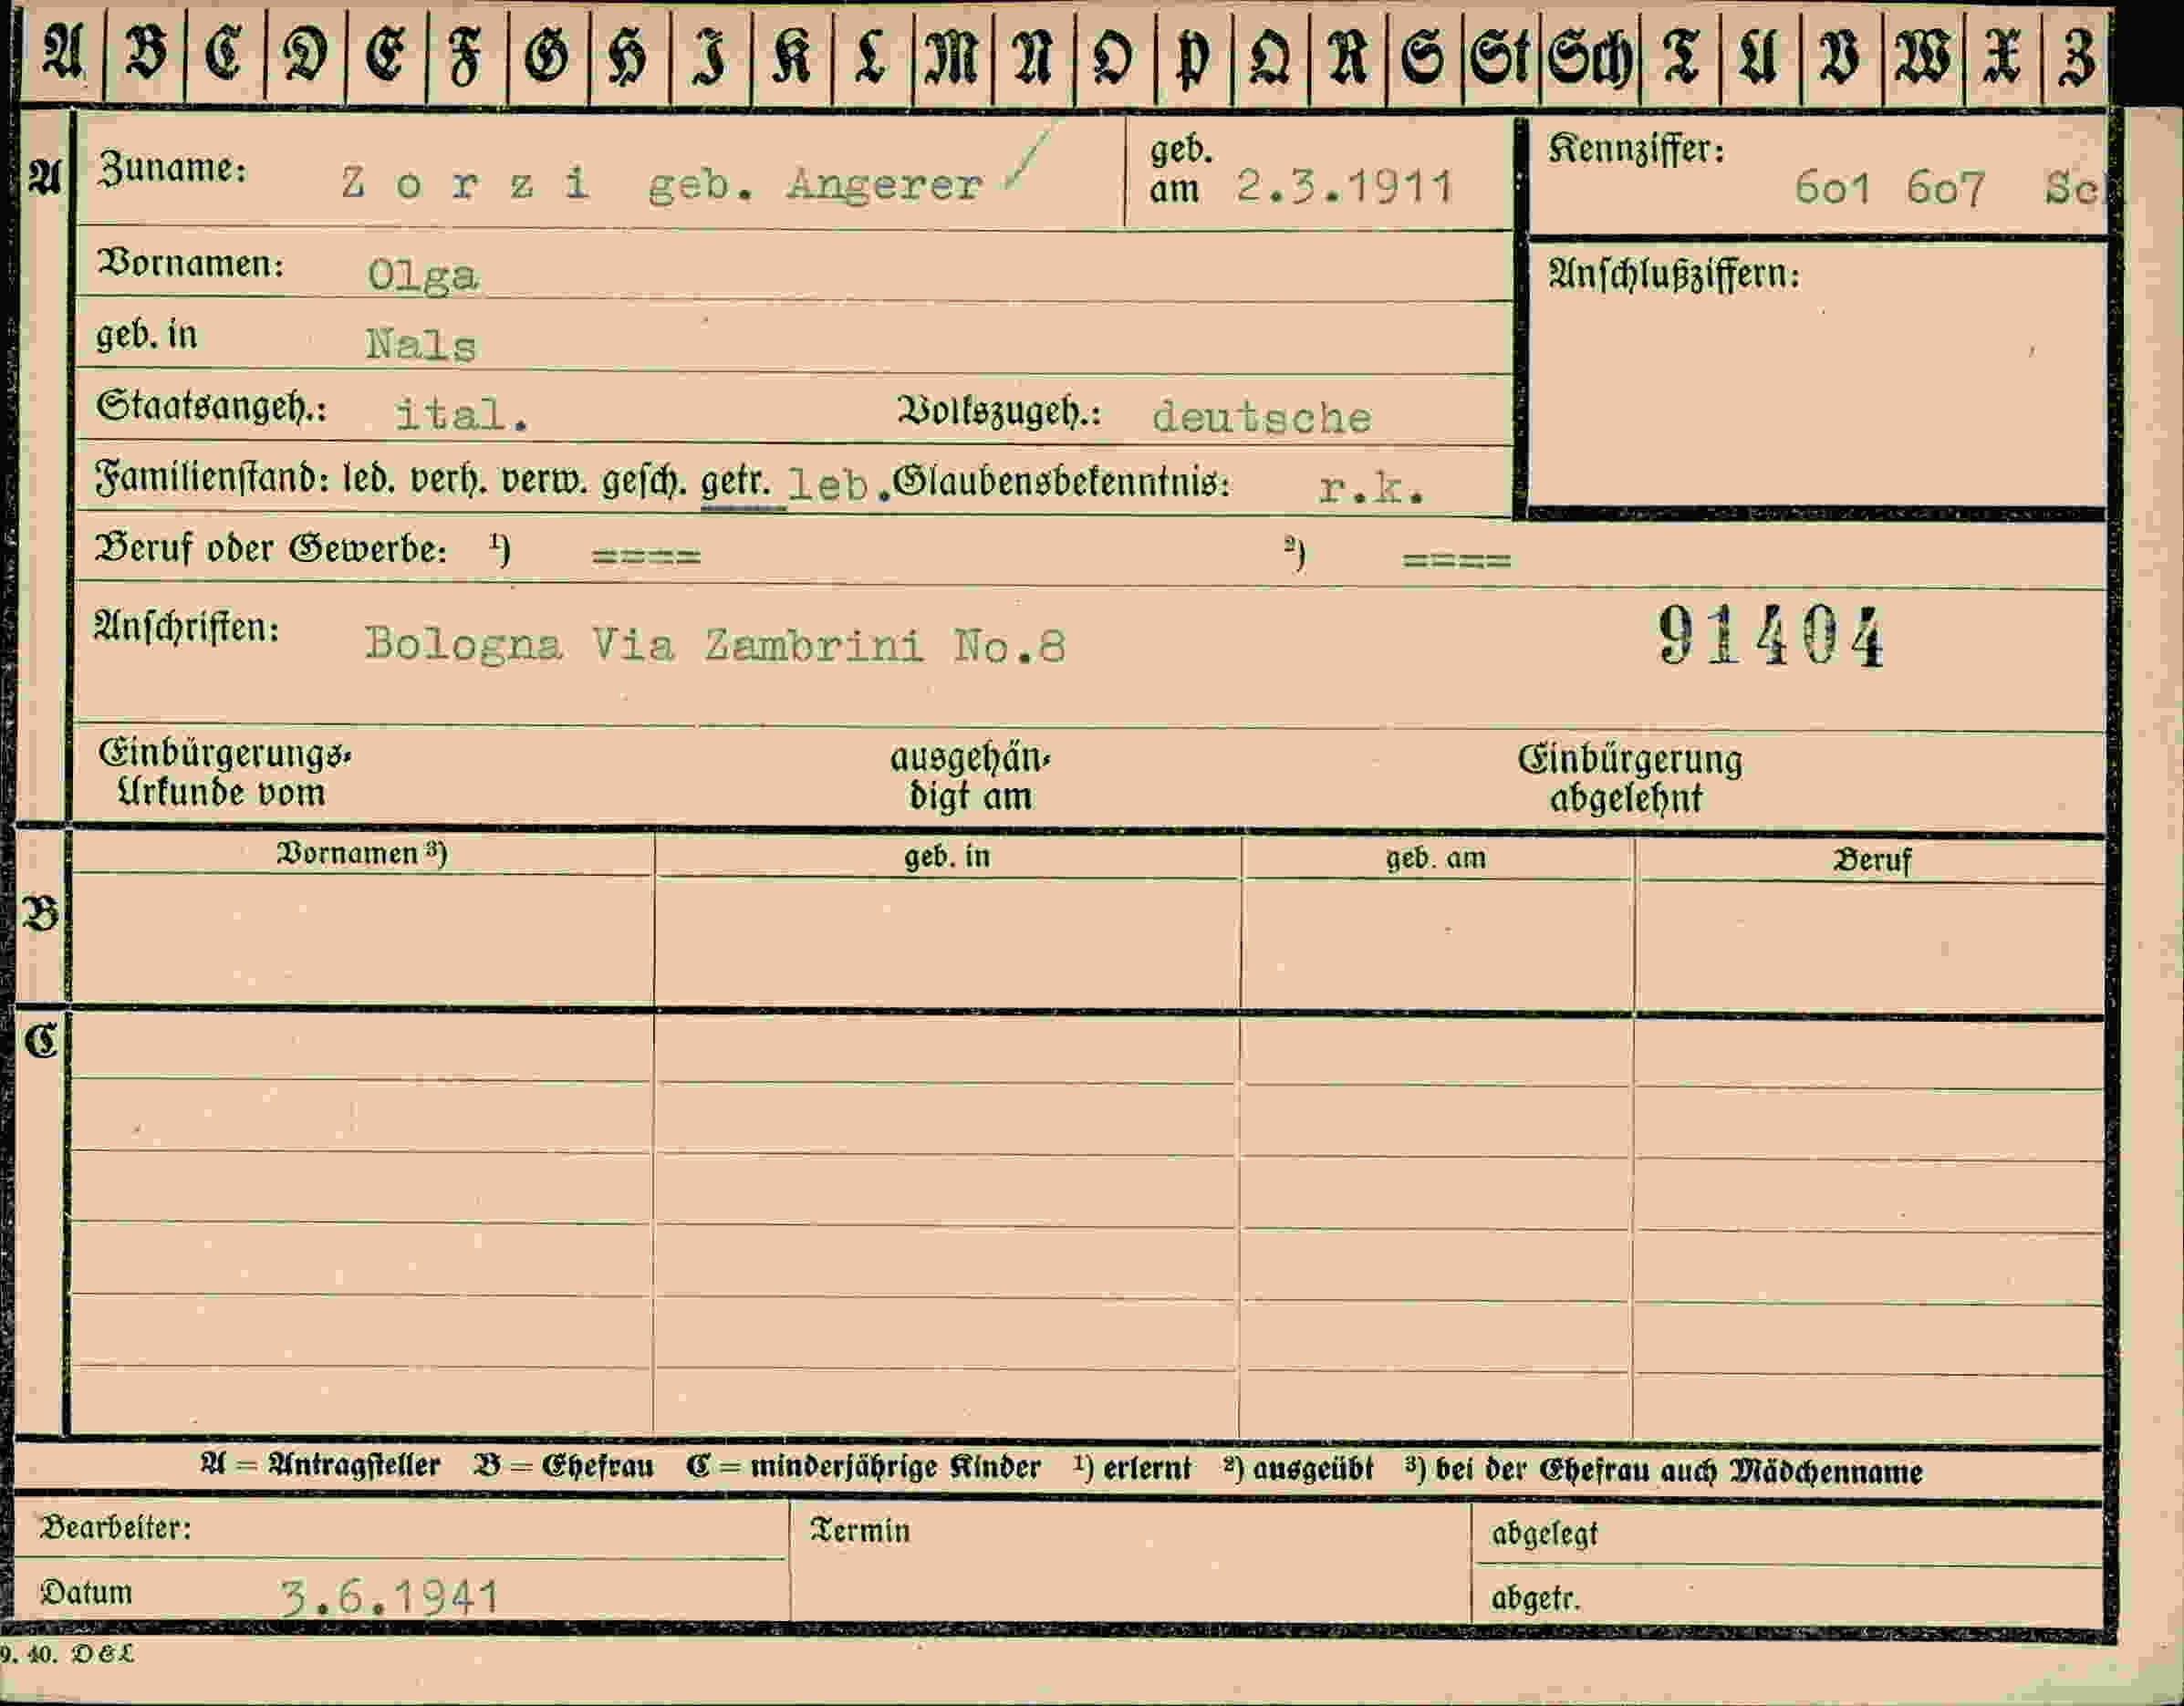 A B C D E F G H I K L M N O P Q R S St Sch T U V W X Z
A Zuname: Zorzi geb. Angerer geb. am 2.3.1911 Kennziffer: 601 607 Sc
Vornamen: Olga Anschlußziffern:
geb. in Nals
Staatsangeh.: ital. Volkszugeh.: deutsche
Familienstand: led. verh. verw. gesch. getr. leb. Glaubensbekenntnis: r.k.
Beruf oder Gewerbe: ¹) ==== ²) ====
Anschriften: Bologna Via Zambrini No.8 91404
Einbürgerungs- ausgehän- Einbürgerung
Urkunde vom digt am abgelehnt
Vornamen ³) geb. in geb. am Beruf
B
C
A = Antragsteller B = Ehefrau C = minderjährige Kinder ¹) erlernt ²) ausgeübt ³) bei der Ehefrau auch Mädchenname
Bearbeiter: Termin abgelegt
Datum 3.6.1941 abgetr.
9. 40. D&L